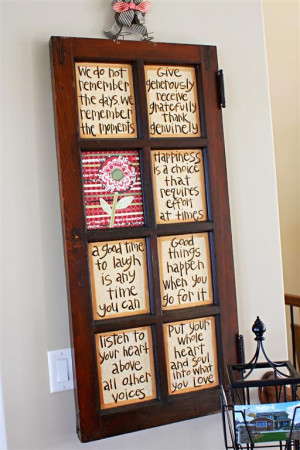 we do not
remember
the days, we
remember
the moments
Give
generously
receive
gratefully
thank
genuinely
Happiness
is a choice
that
requires
effort
at times
a good time
to laugh
is any
time
you can
Good
things
happen
when
you go for it
listen to
your heart
above
all other
voices
put your
whole
heart
and soul
into what
you Love